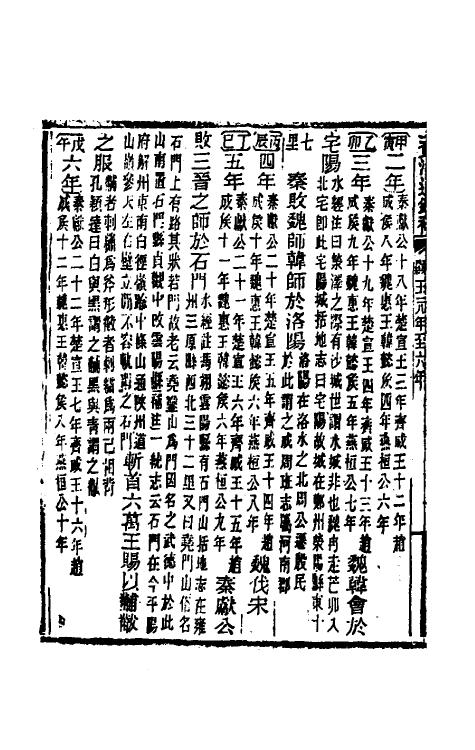 顯王元年至六年
甲寅二年秦獻公十八年楚宣王三年齊威王十二年趙成侯八年魏惠王韓懿侯四年燕桓公六年
乙卯三年秦獻公十九年楚宣王四年齊威王十三年趙成侯九年魏惠王韓懿侯五年燕桓公七年魏韓會於
宅陽水經注曰滎澤之際有沙城世謂水城非也魏冉走芒卯入北宅卽此宅陽城括地志曰宅陽故城在鄭州滎陽縣東十
七里秦敗魏師韓師於洛陽洛陽在洛水之北周公遷殷民於此謂之成周班志屬河南郡
丙辰四年秦獻公二十年楚宣王五年齊威王十四年趙成侯十年魏惠王韓懿侯六年燕桓公八年魏伐宋
丁巳五年秦獻公二十一年楚宣王六年齊威王十五年趙成侯十一年魏惠王韓懿侯六年燕桓公九年秦獻公
敗三晉之師於石門水經註馮翊雲陽縣有石門山括地志在雍州三原縣西北三十二里又曰堯門山俗名
石門上有路其狀若門故老云堯鑿山爲門因名之武德中於此山南置石門縣貞觀中改雲陽縣補註一統志云石門在今平陽
府解州東南白徑嶺踰中條山通陝州道山嶺參天左右壁立間不容軌謂之石門斬首六萬王賜以黼黻
之服黼者刺繡爲斧形黻者刺繡爲兩己相背孔穎達曰白與黑謂之黼黑與青謂之黻
戊午六年秦獻公二十二年楚宣王七年齊威王十六年趙成侯十二年魏惠王韓懿侯八年燕桓公十年